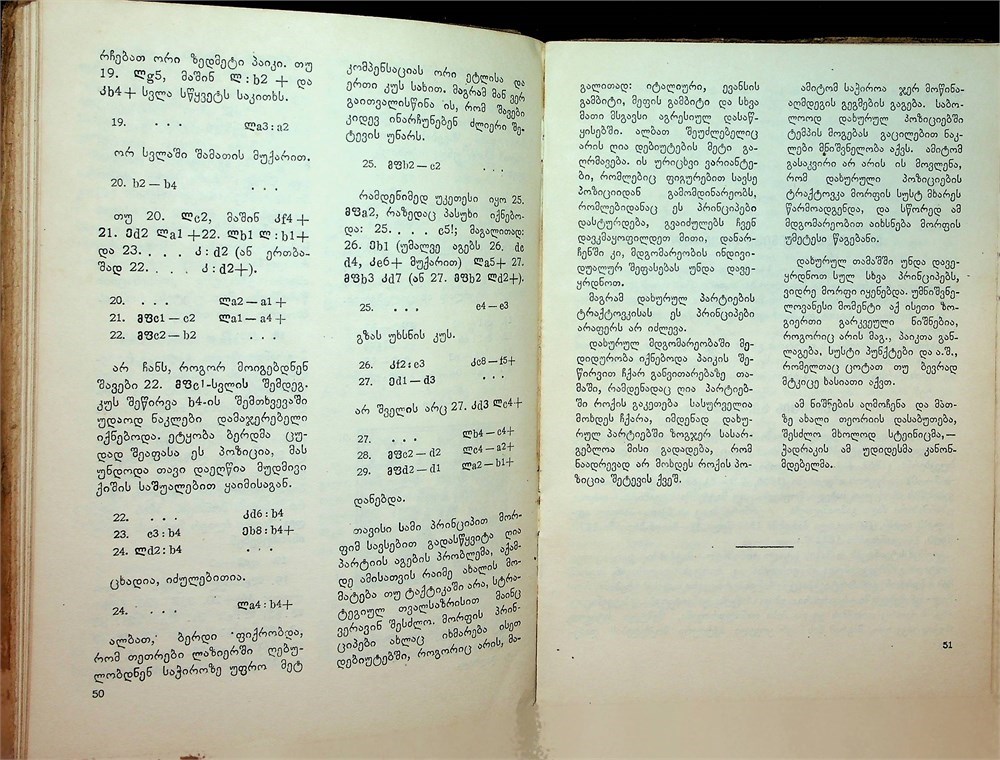 რჩებათ ორი ზედმეტი პაიკი. თუ
19. ლg5, მაშინ ლ : b2 + და
კb4+ სვლა სწყვეტს საკითხს.
19. . . . ლa3 : a2
ორ სვლაში შამათის მუქარით.
20. b2 — b4 . . .
თუ 20. ლc2, მაშინ კf4 +
21. მd2 ლa1 +22. ლb1 ლ : b1+
და 23. . . . კ : d2 (ან ერთბა-
შად 22. . . . კ : d2+).
20. . . . ლa2 — a1 +
21. მფc1 — c2 ლa1 — a4 +
22. მფc2 — b2 . . .
არ ჩანს, როგორ მოიგებდნენ
შავები 22. მფc1-სვლის შემდეგ.
კუს შეწირვა b4-ის შემთხვევაში
უდაოდ ნაკლები დამაჯერებელი
იქნებოდა. ეტყობა ბერდმა ცუ-
დად შეაფასა ეს პოზიცია, მას
უნდოდა თავი დაეღწია მუდმივი
ქიშის საშუალებით ყაიმისაგან.
22. . . . კd6 : b4
23. c3 : b4 მb8 : b4+
24. ლd2 : b4 . . .
ცხადია, იძულებითია.
24. . . . ლa4 : b4+
ალბათ, ბერდი ფიქრობდა,
რომ თეთრები ლაზიერში ღებუ-
ლობდნენ საჭიროზე უფრო მეტ
50
კომპენსაციას ორი ეტლისა და
ერთი კუს სახით. მაგრამ მან ვერ
გაითვალისწინა ის, რომ შავები
კიდევ ინარჩუნებენ ძლიერი შე-
ტევის უნარს.
25. მფb2 — c2 . . .
რამდენიმედ უკეთესი იყო 25.
მფa2, რაზედაც პასუხი იქნებო-
და: 25. . . . c5!; მაგალითად:
26. მb1 (უმალვე აგებს 26. dc
d4, კe6+ მუქარით) ლa5+ 27.
მფb3 კd7 (ან 27. მფb2 ლd2+).
25. . . . e4 — e3
გზას უხსნის კუს.
26. კf2 : e3 კc8 — f5+
27. მd1 — d3 . . .
არ შველის არც 27. კd3 ლc4+
27. . . . ლb4 — c4+
28. მფc2 — d2 ლc4 — a2+
29. მფd2 — d1 ლa2 — b1+
დანებდა.
თავისი სამი პრინციპით მორ-
ფიმ სავსებით გადასწყვიტა ღია
პარტიის აგების პრობლემა, აქამ-
დე ამისათვის რაიმე ახალის მო-
მატება თუ ტაქტიკაში არა, სტრა-
ტეგიულ თვალსაზრისით მაინც
ვერავინ შესძლო. მორფის პრინ-
ციპები ახლაც იხმარება ისეთ
დებიუტებში, როგორიც არის, მა-
გალითად: იტალიური, ევანსის
გამბიტი, მეფის გამბიტი და სხვა
მათი მსგავსი აგრესიულ დასაწ-
ყისებში. ალბათ შეუძლებელიც
არის ღია დებიუტების მეტი გა-
ღრმავება. ის ურიცხვი ვარიანტე-
ბი, რომლებიც ფიგურებით სავსე
პოზიციიდან გამომდინარეობს,
რომლებიდანაც ეს პრინციპები
დასტურდება, გვაიძულებს ჩვენ
დავკმაყოფილდეთ მითი, დანარ-
ჩენში კი, მდგომარეობის ინდივი-
დუალურ შეფასებას უნდა დავე-
ყრდნოთ.
მაგრამ დახურულ პარტიების
ტრაქტოვკისას ეს პრინციპები
არაფერს არ იძლევა.
დახურულ მდგომარეობაში მე-
დიდურობა იქნებოდა პაიკის შე-
წირვით ჩქარ განვითარებაზე თა-
მაში, რამდენადაც ღია პარტიებ-
ში როქის გაკეთება სასურველია
მოხდეს ჩქარა, იმდენად დახუ-
რულ პარტიებში ზოგჯერ სასარ-
გებლოა მისი გადადება, რომ
ნაადრევად არ მოხდეს როქის პო-
ზიცია შეტევის ქვეშ.
ამიტომ საჭიროა ჯერ მოწინა-
აღმდეგის გეგმების გაგება. საბო-
ლოოდ დახურულ პოზიციებში
ტემპის მოგებას გაცილებით ნაკ-
ლები მნიშვნელობა აქვს. ამიტომ
გასაკვირი არ არის ის მოვლენა,
რომ დახურული პოზიციების
ტრაქტოვკა მორფის სუსტ მხარეს
წარმოადგენდა, და სწორედ ამ
მდგომარეობით აიხსნება მორფის
უმეტესი წაგებანი.
დახურულ თამაშში უნდა დავე-
ყრდნოთ სულ სხვა პრინციპებს,
ვიდრე მორფი იყენებდა. უმნიშვნე-
ლოვანესი მომენტი აქ ისეთი ზო-
გიერთი გარკვეული ნიშნებია,
როგორიც არის მაგ., პაიკთა გან-
ლაგება, სუსტი პუნქტები და ა.შ.,
რომელთაც ცოტათ თუ ბევრად
მტკიცე ხასიათი აქვთ.
ამ ნიშნების აღმოჩენა და მათ-
ზე ახალი თეორიის დასაბუთება,
შესძლო მხოლოდ სტეინიცმა,—
ჭადრაკის ამ უდიდესმა კანონ-
მდებელმა.
51